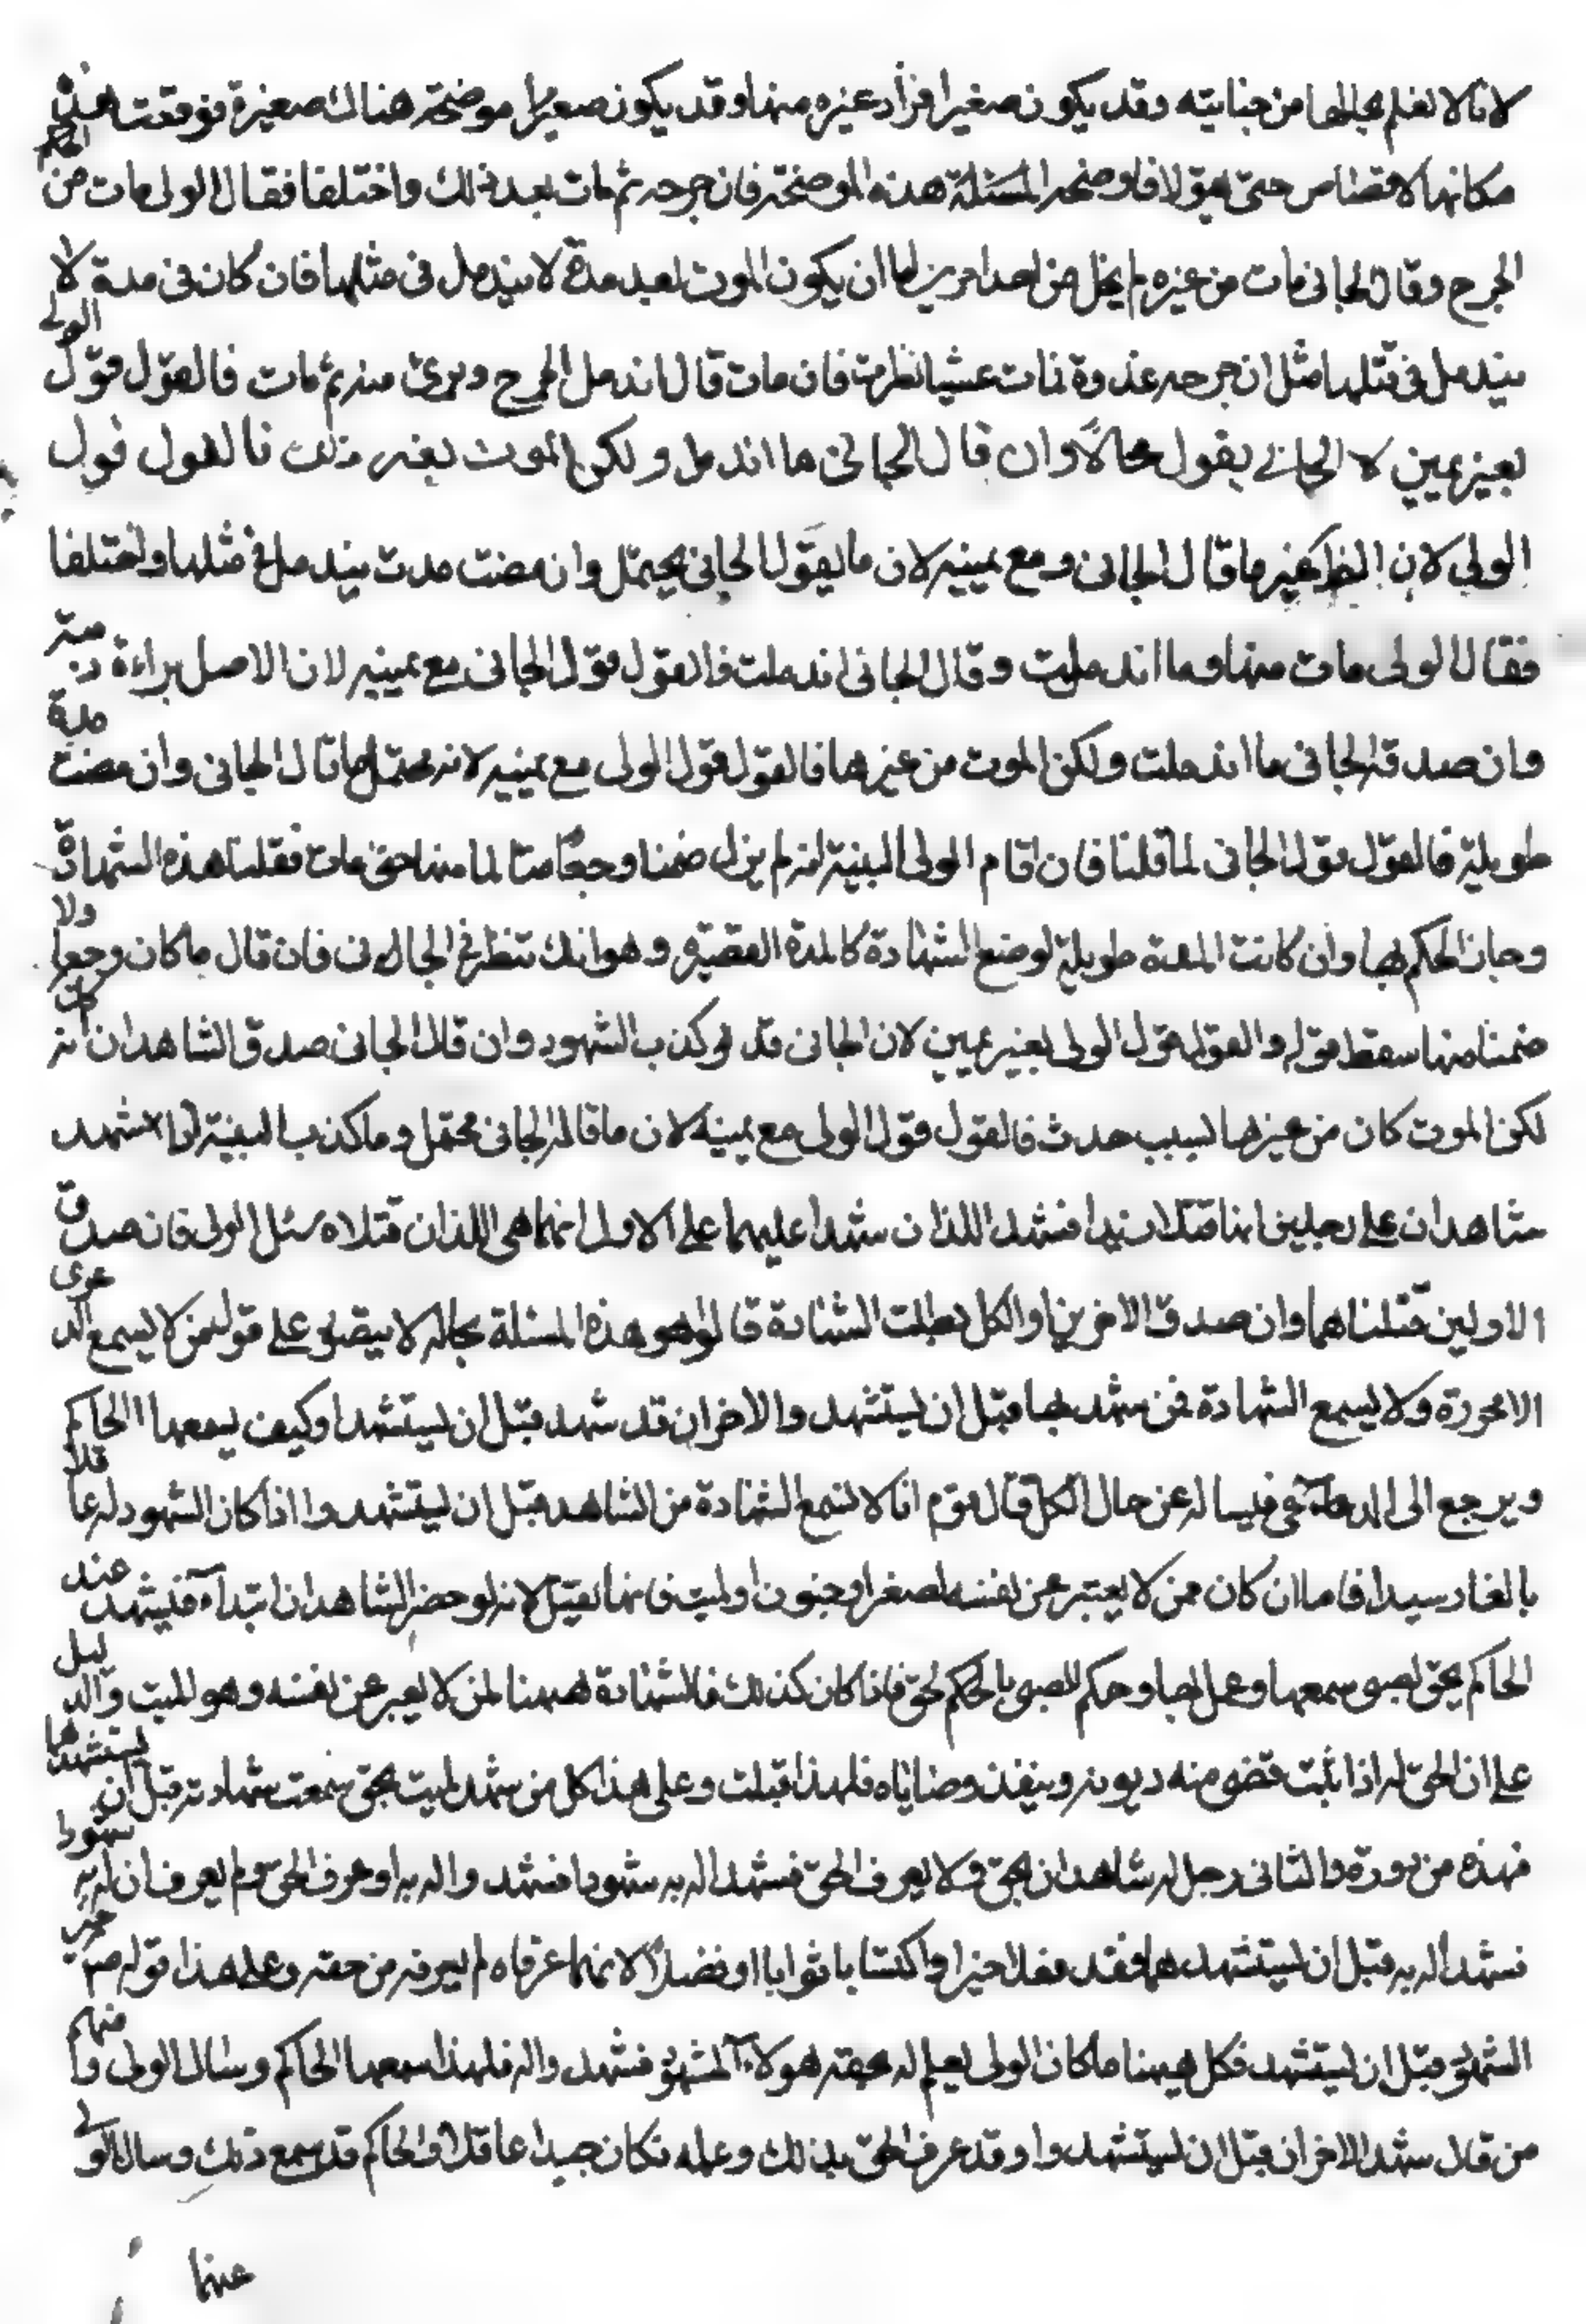 لانا لا نعلم بحالها من جنايته وقد يكون صغيرا فزاد غيره منها وقد يكون صغيرا موضحة هناك صغيرة فوقعت هذه
مكانها لا قصاص حتى يقولا فاوضحه المسئلة هذه الموضحة فان جرحه ثم مات بعد ذلك واختلفا فقال الولي مات من الحكم
الجرح وقال الجاني مات من غيره لم يخل من احد امرين اما ان يكون الموت بعد مدة لا يندمل في مثلها فان كان في مدة لا
يندمل في مثلها مثل ان جرحه غدوة فمات عشيا نظرت فان مات قال اندمل الجرح وبرئ منه ثم مات فالقول قول الولي
بغير يمين لا الجاني يقول محالا وان قال الجاني ما اندمل ولكن الموت بغير ذلك فالقول قول
الولي لان الظ غير ما قال الجاني ومع يمينه لان ما يقول الجاني يحتمل وان مضت مدت يندمل في مثلها واختلفا
فقال الولي مات منها وما اندملت وقال الجاني اندملت فالقول قول الجاني مع يمينه لان الاصل براءة ذمته
وان صدقه الجاني ما اندملت ولكن الموت من غيرها فالقول قول الولي مع يمينه لانه محتمل ما قال الجاني وان مضت مدة
طويلة فالقول قول الجاني لما قلنا فان اقام الولي البينة انه لم يزل ضمنا وجعا متالما منها حتى مات فقلنا هذه الشهادة
وجاز الحكم بها وان كانت المدة طويلة لوضع الشهادة كالمدة القصيرة وهو انك تنظر في الجاني فان قال ما كان وجعا ولا
ضمنا منها سقط قوله والقول قول الولي بغير يمين لان الجاني قد كذب الشهود وان قال الجاني صدق الشاهدان كان
لكن الموت كان من غيرها لسبب حدث فالقول قول الولي مع يمينه لان ما قاله الجاني محتمل وما كذب البينة اذا شهد
شاهدان على رجلين انهما قتلا زيدا فشهد اللذان شهدا عليهما على الاولين انهما هما اللذان قتلاه سئل الولي فان صدق
الاولين قتلناهما وان صدق الاخرين او الكل بطلت الشهادة قالوا هو هذه المسئلة بحاله لا يتصور على قول من لا يسمع الدعوى
الا محررة ولا يسمع الشهادة ممن شهد بها قبل ان يستشهد والاخران قد شهد قبل ان يستشهدا وكيف يسمعها الحاكم
ويرجع الى المدعي فيساله عن حال الكل قال قوم انا لا نسمع الشهادة من الشاهد قبل ان يستشهدوا اذا كان الشهود له عاقلا
بالغا رسيدا فاما ان كان ممن لا يعتبر عن نفسه لصغر او جنون او لميت فانما تقبل لانه لو حضر الشاهدان ابتداء فشهد عند
الحاكم بحق لصبي سمعها وعمل بها وحكم للصبي بالحكم لحق فاذا كان كذلك فالشهادة ههنا لمن لا يعبر عن نفسه وهو للميت والدليل
على ان الحق له اذا ثبت قضي منه ديونه وينفذ وصاياه فلهذا قبلت وعلى هذا كل من شهد لميت بحق سمعت شهادته قبل ان يستشهدها
فهذه من دورة والثاني رجل له شاهدان بحق ولا يعرف الحق فشهدا له به شهودا فشهدوا له به او عرف الحق ولم يعرف ان له به شهودا
فشهدا له به قبل ان يستشهدهما فقد فعلا خيرا واكتسابا ثوابا وفضلا لانهما عرفاه لم يعرفه من حقه وعلى هذا قوله ص خير
الشهود قبل ان يستشهد فكل ههنا ما كان الولي يعلم له بحقه هولاء الشهود فشهدوا له فلهذا سمعها الحاكم وسال الولي ومنهم
من قال شهد الاخران قبل ان يستشهدوا وقد عرف الحق بذلك وعلمه فكان جيدا عاقلا والحاكم قد سمع ذلك وسال الولي
عنها